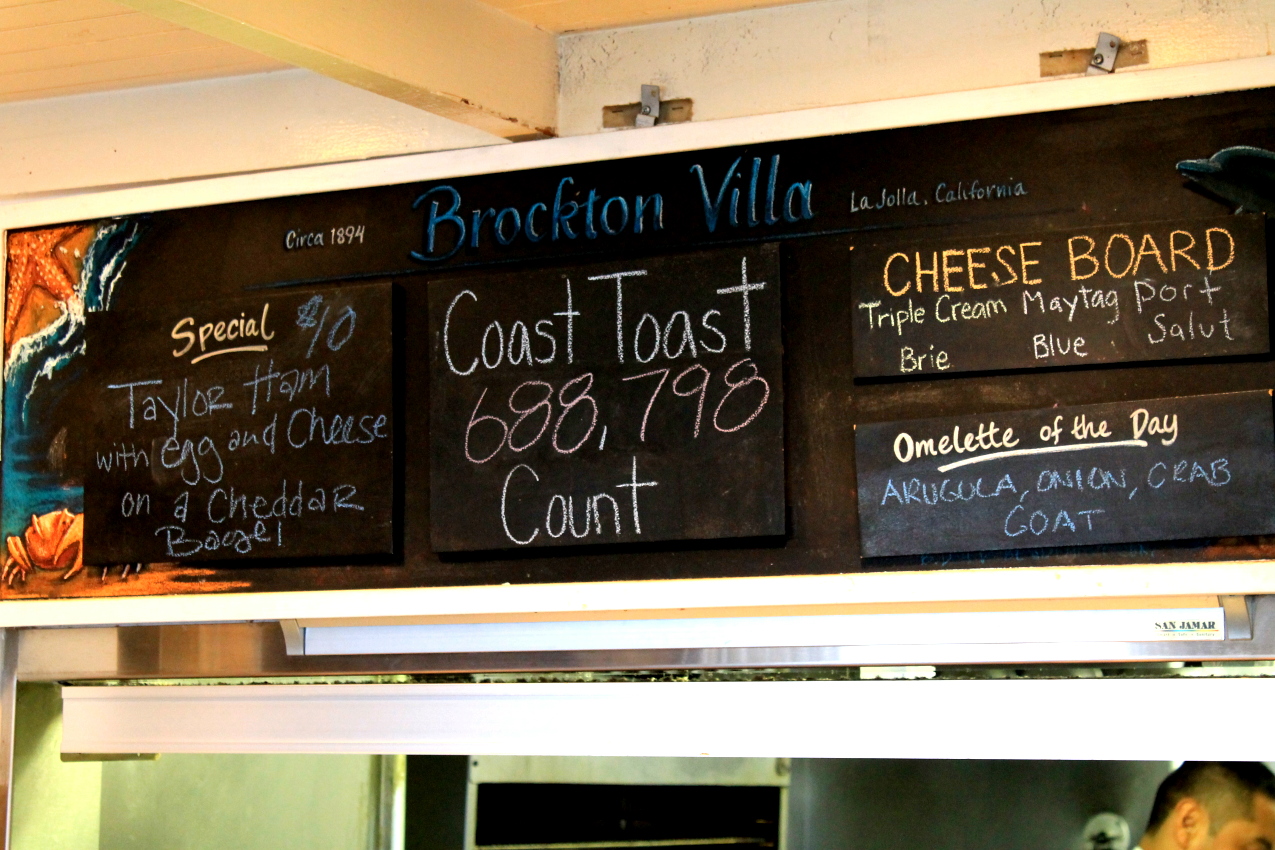 Brockton Villa
Circa 1894
La Jolla, California
Special $10
Taylor Ham
with egg and Cheese
on a Cheddar
Bagel
Coast Toast
688,798
Count
CHEESE BOARD
Triple Cream Maytag Port
Brie Blue Salut
Omelette of the Day
ARUGULA, ONION, CRAB
GOAT
SAN JAMAR